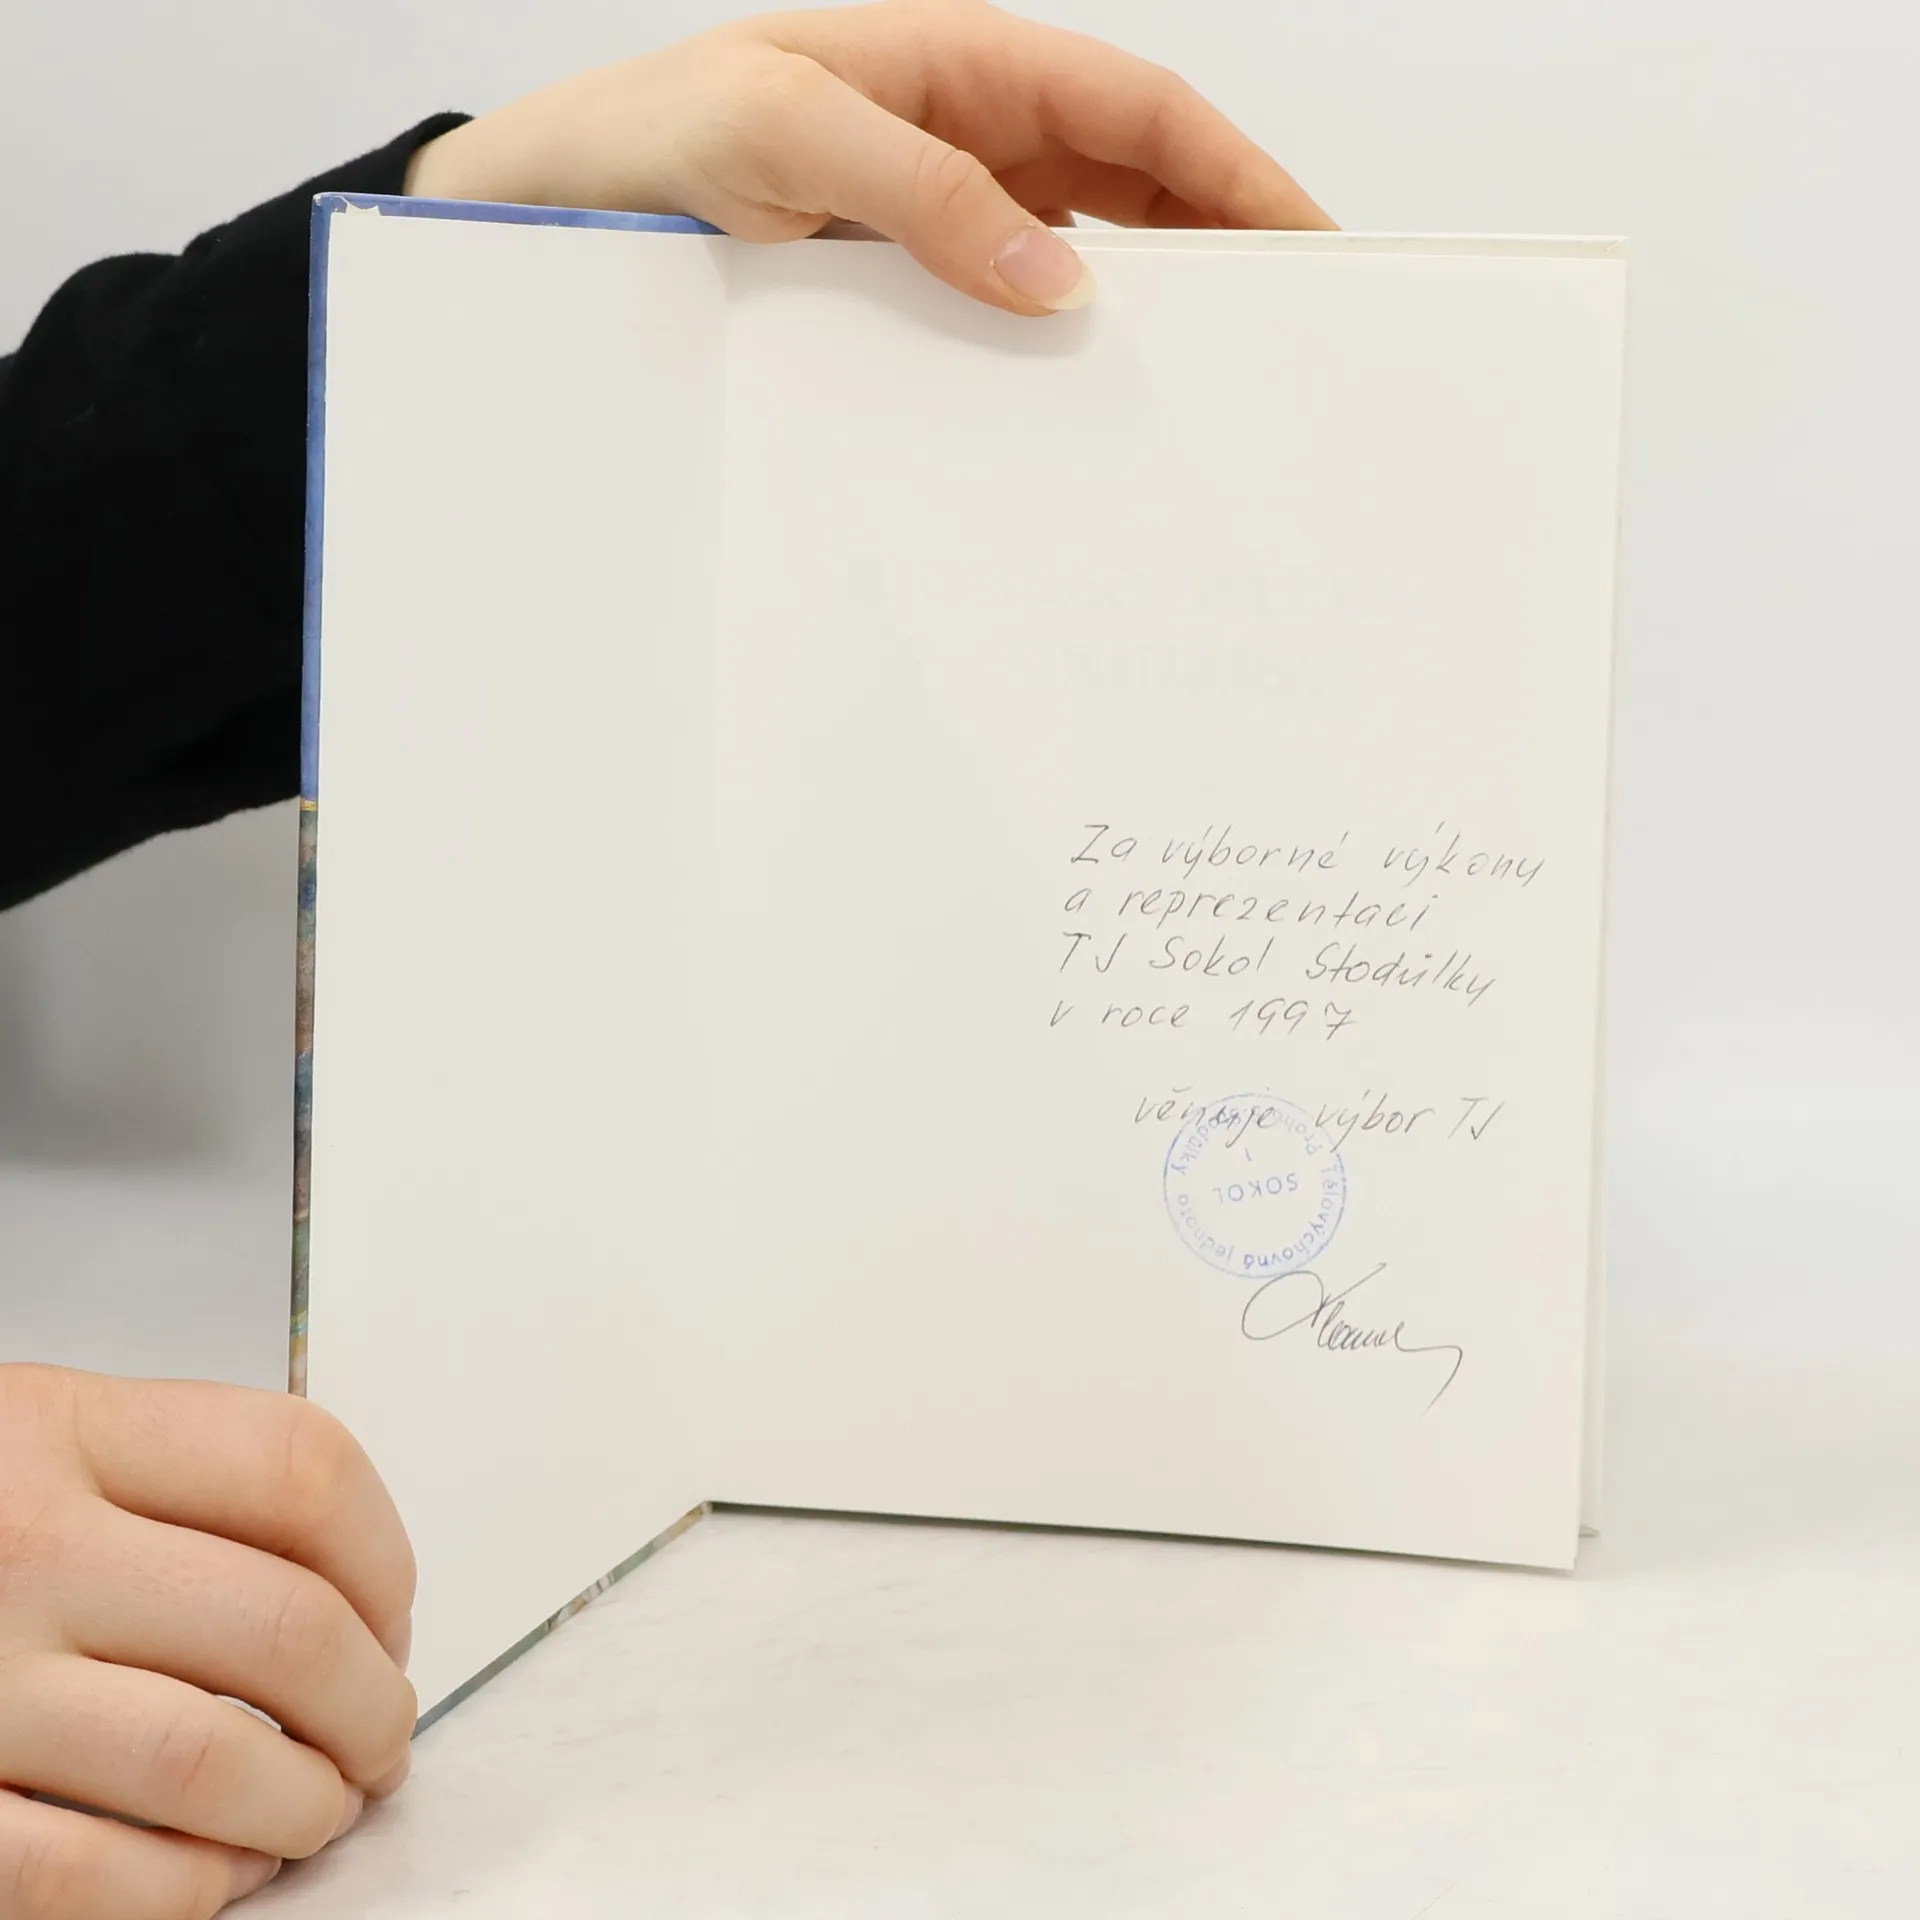 Za výborné výkony
a reprezentaci
TJ Sokol Stodůlky
v roce 1997
věnuje výbor TJ
Tělovýchovná jednota
SOKOL